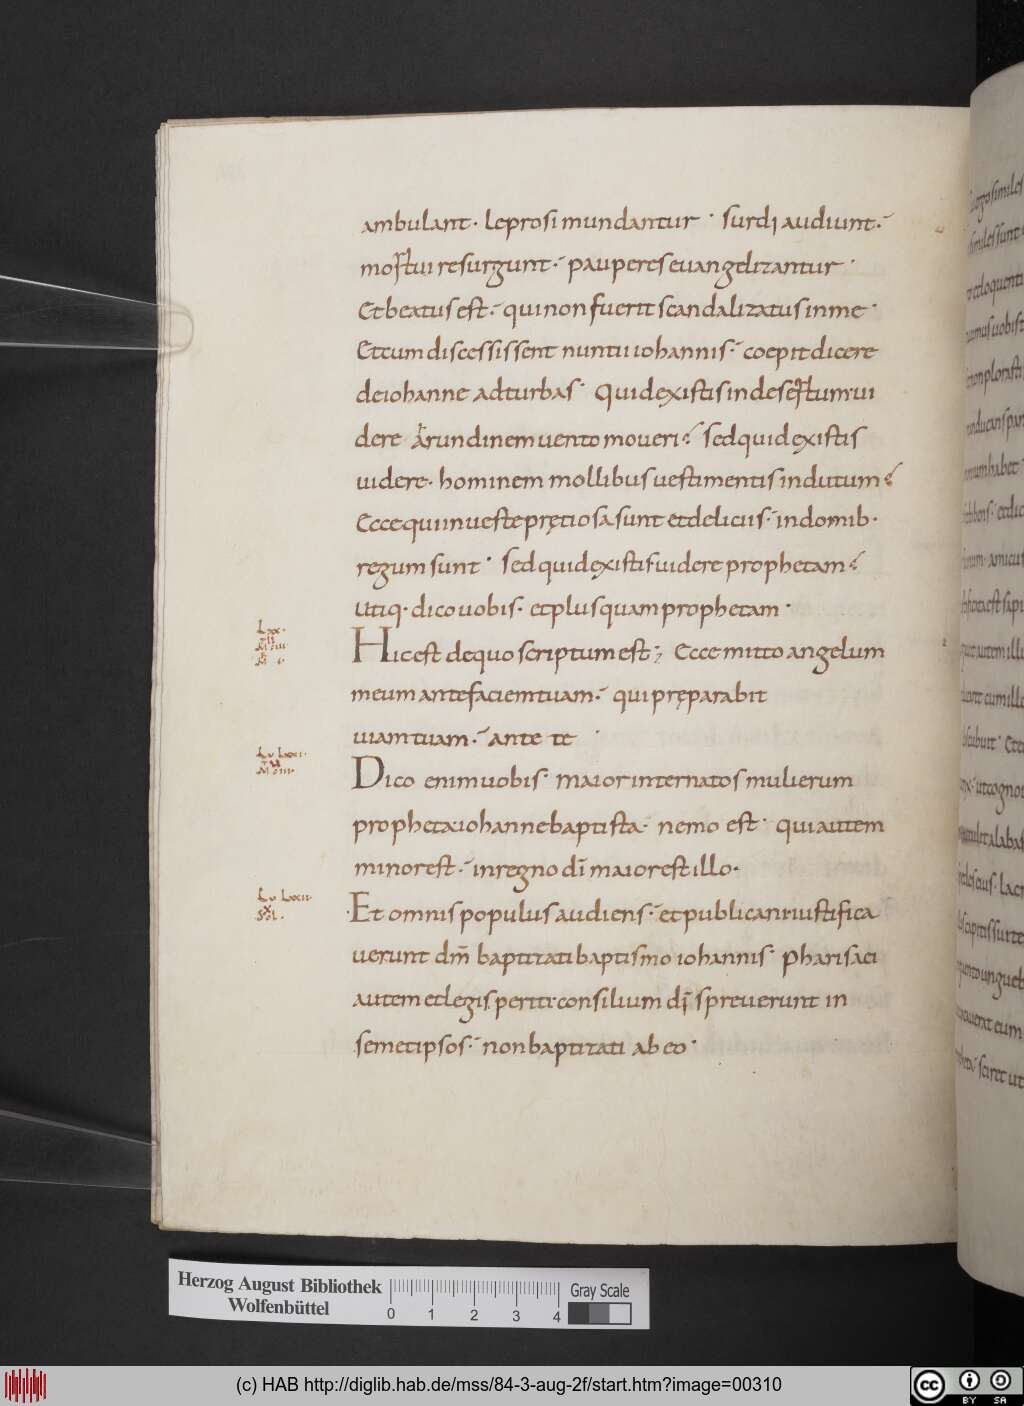 ambulant· leprosi mundantur · surdi audiunt·
mortui resurgunt· pauperes euangelizantur ·
Et beatus est· qui non fuerit scandalizatus in me ·
Et cum discessissent nuntii iohannis· coepit dicere
de iohanne ad turbas· Quid existis in desertum ui
dere Arundinem uento moueri? sed quid existis
uidere· hominem mollibus uestimentis indutum?
Ecce qui in ueste pręciosa sunt et deliciis· in domib·
regum sunt · sed quid existis uidere prophetam?
Utiq· dico uobis· et plus quam prophetam ·
Hic est de quo scriptum est; Ecce mitto angelum
meum ante faciem tuam· qui pręparabit
uiam tuam· ante te ·
Dico enim uobis· maior inter natos mulierum
propheta iohanne baptista· nemo est· qui autem
minor est· in regno dī maior est illo·
Et omnis populus audiens· et publicani iustifica
uerunt dm̄ baptizati baptismo iohannis· Pharisaei
autem et legis periti consilium dī spreuerunt in
semetipsos· non baptizati ab eo·
Lxx·
Lu Lxxi·
Lu Lxxii·
Herzog August Bibliothek
Wolfenbüttel
0 1 2 3 4
Gray Scale
(c) HAB http://diglib.hab.de/mss/84-3-aug-2f/start.htm?image=00310
cc BY SA